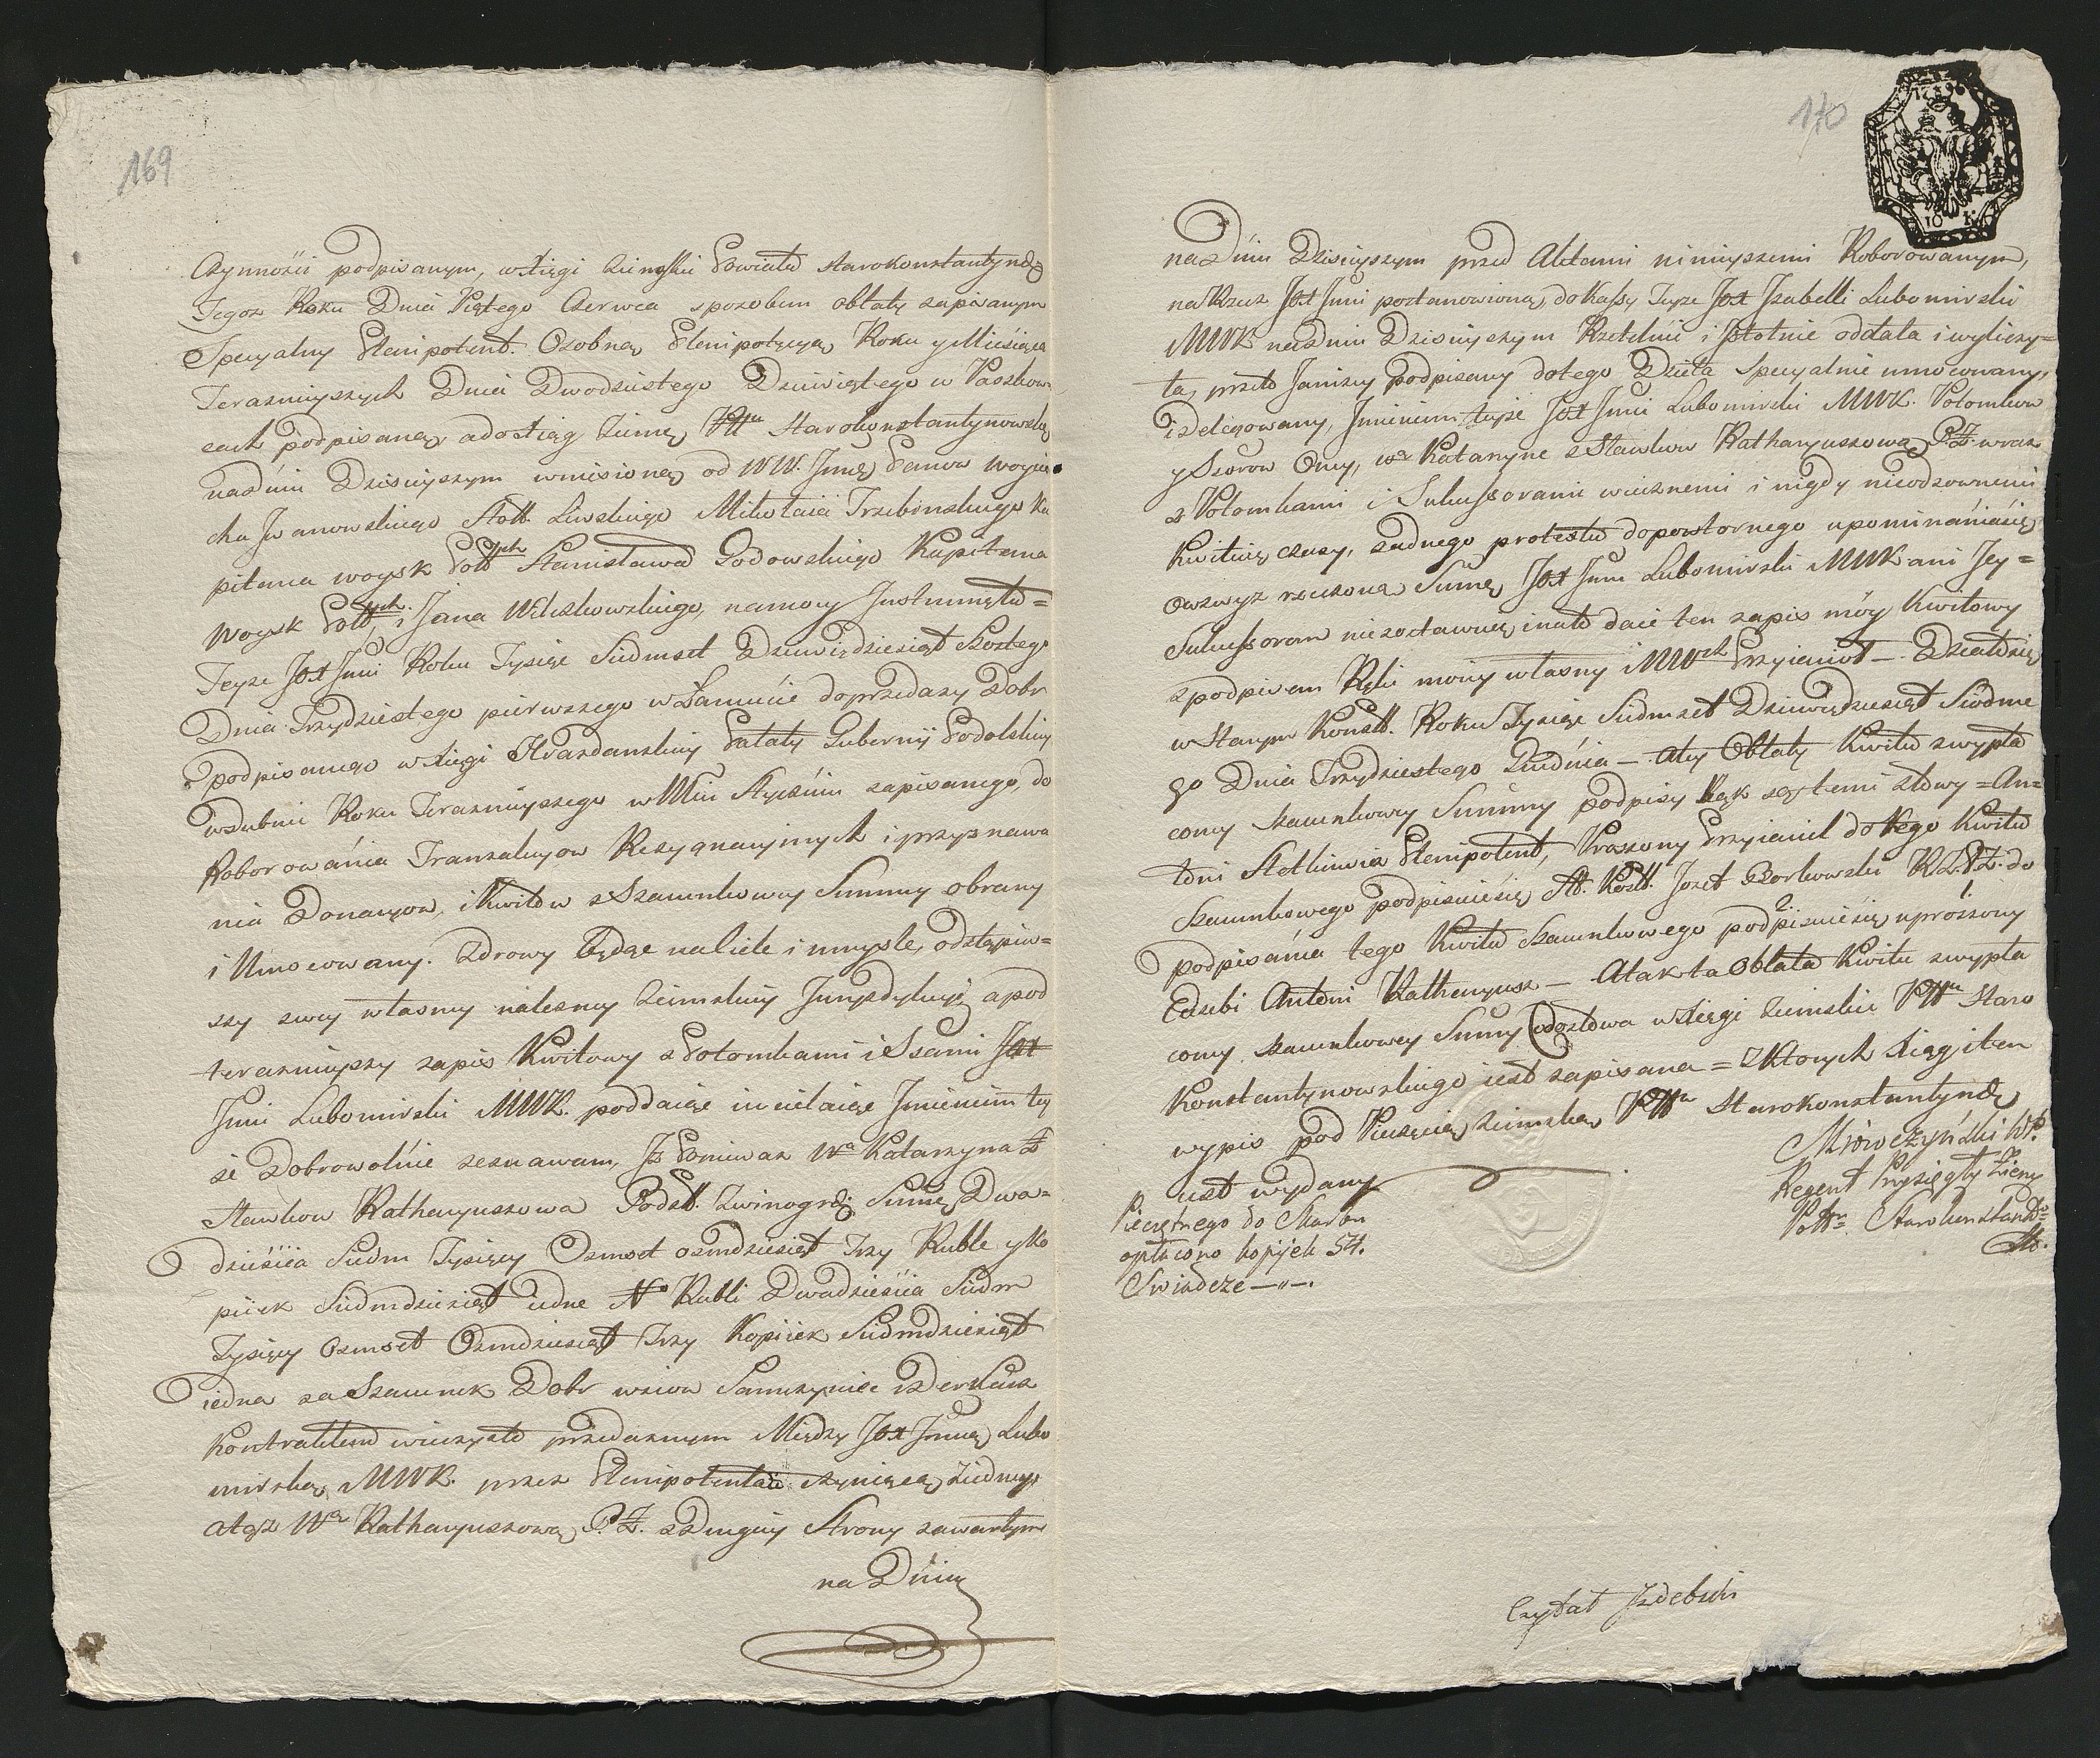 169
Czynności podpisanym, w Xięgi Ziemskie Powiatu Starokonstantynogo
Tegoż Roku Dnia Piątego Czerwca sposobem oblaty zapisanym
Specyalny Plenipotent. Osobną Plenipotęcyą Roku y Miesiąca
Teraznieyszych Dnia Dwódziestego Dziewiątego w Paszkow
cach podpisaną, a do Xiąg Ziemę Pttu Starokonstantynowskę
na dniu Dzisieyszym wniesioną od WW. Jmę Panow Woycie
cha Iwanowskiego Stoll. Liwskiego Mikołaia Trzebinskiego Ka
pitana woysk Polłych Stanisława Godowskiego Kapitana
Woysk Polłych. i Jana Wilczkowskiego, na mocy Jnstrumętu=
Teyże JOX Jmci Roku Tysiąc Siedmset Dziewiędziesiąt Szostego
Dnia Trzydziestego pierwszego w Łancucie do przedazy Dobr
podpisanego w Xięgi Grazdanskiey Pałaty Gubernij Podolskiey
w Dubnie Roku Teraznieyszego w Mcu Styczniu zapisanego, do
Roborowánia Tranzakcyow Rezygnacyinych i przyznawa
nia Donacyow, i Kwitów z Szacunkowey Summy obrany
i Umocowany. Zdrowy będąc na ciele i umysle, odstąpiw=
szy swey własney należney Ziemskiey Juryzdykcyi a pod
teraznieyszy zapis Kwitowy z Potomkami i Sssami JOX
Jmci Lubomirski MWK. poddaiąc i wcielaiąc Jmieniem tey
że Dobrowolnie zeznawam, Jż Ponieważ Wa Katarzyna z
Stawkow Katharyuszowa Podsł. Zwinogrdz. Sumę Dwa=
dzieścia Siedm Tysięcy Osmset osmdziesiąt Trzy Ruble y ko
piiek Siedmdziesiąt iedne No Rubli Dwadzieścia Siedm
Tysięcy Osmset Osmdziesiąt Trzy Kopiiek Siedmdziesiąt
iedna za Szacunek Dobr wsiow Samczyniec i Derkacz
Kontraktem wieczysto przedaznym Między JOX Jmcią Lubo
mirską MWK. przez Plenipotenta czyniącą z iedney
a tąż Wą Katharyuszową P.Z. z Drugiey Strony zawartym
na Dniu
170
1796
10 K
na Dniu Dzisieyszym przed Aktami ninieyszemi Roborowanym,
na Rzecz JOX Jmci postanowioną do Kassy Teyże JOX Jzabelli Lubomirski
MWK na dniu Dzisieyszym Rzetelnie i Jstotnie oddała i wyliczy=
ła, przeto Ja niżey podpisany do tego Dzieła Specyalnie umocowany,
i Delegowany, Jmieniem teyże JOX Jmci Lubomirski MWK. Potomkow
y Sssorow Oney, Wą Katarzyne z Stawkow Katharyuszową P.Z. wraz
z Potomkami i Sukcessorami wiecznemi i nigdy nieodzownemi
Kwituię czasy, zadnego protestu do powtornego upominániasię
o wzwyz rzeczoną Sumę JOX Jmci Lubomirski MWK ani Jey=
Sukcessorom nie zostawuię, i na to daie ten zapis móy Kwitowy
z podpisem Ręki moiey własney i MWch Przyiaciół — Działosię
w Starym Konstt. Roku Tysiąc Siedmset Dziewiędziesiąt Siódme
go Dnia Trzydziestego Grudnia — Atey Oblaty Kwitu z wypła
coney Szacunkowey Summy podpisy Rąk są temi słowy = An=
toni Stetkiewicz Plenipotent, Proszony Przyiaciel do tego Kwitu
Szacunkowego podpisuiesię St. Kostt. Jozef Borkowski R.Z.P.Z. do
podpisánia tego Kwitu Szacunkowego podpisuiesię uproszony
Edzebi Antoni Katharyusz — A tak ta Oblata Kwitu z wypła
coney Szacunkowey Sumy Co do słowa w Xięgi Ziemskie Pttu Staro
Konstantynowskiego iest zapisana = Z Ktorych Xiąg i ten
wypis pod Pieczęcią Ziemską Pttu Starokonstantyndz
iest wydany
Mrówczyński WP.
Regent Przysięgły Ziemę
Pottu Starokonstandz
Pieczętnego do Skarbu
opłacono kopijek 54.
Swiadczę —"—.
Czytał Jzdebski